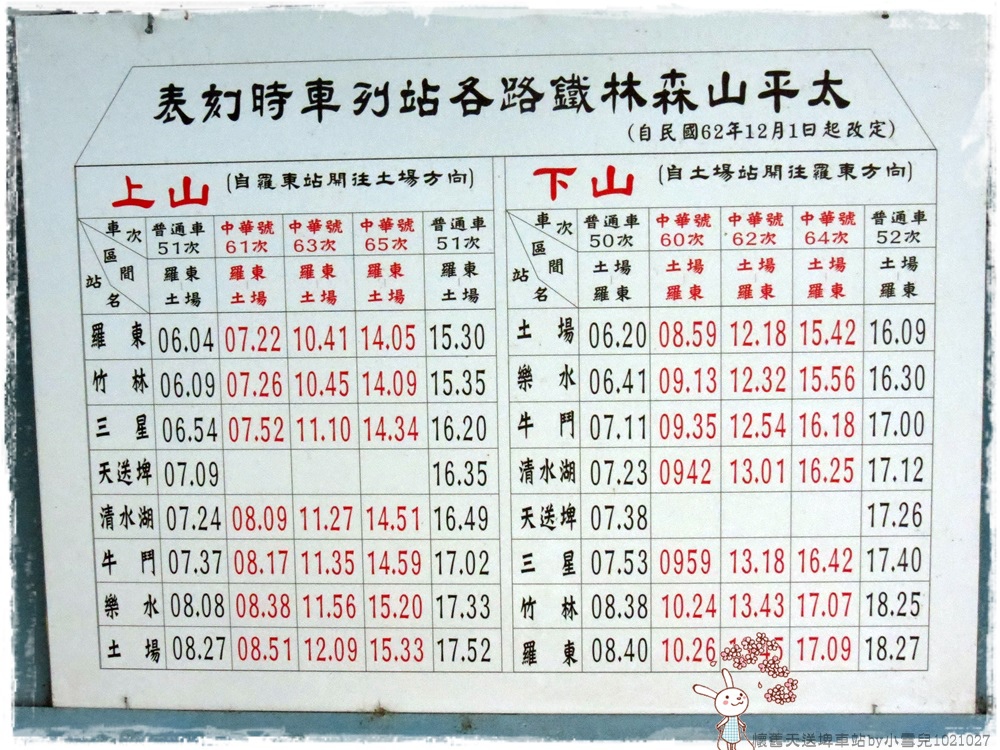 太平山森林鐵路各站列車時刻表
(自民國62年12月1日起改定)
上山 (自羅東站開往土場方向)
車次 普通車 中華號 中華號 中華號 普通車
51次 61次 63次 65次 51次
區間 羅東 羅東 羅東 羅東 羅東
站名 土場 土場 土場 土場 土場
羅東 06.04 07.22 10.41 14.05 15.30
竹林 06.09 07.26 10.45 14.09 15.35
三星 06.54 07.52 11.10 14.34 16.20
天送埤 07.09 16.35
清水湖 07.24 08.09 11.27 14.51 16.49
牛鬥 07.37 08.17 11.35 14.59 17.02
樂水 08.08 08.38 11.56 15.20 17.33
土場 08.27 08.51 12.09 15.33 17.52
下山 (自土場站開往羅東方向)
車次 普通車 中華號 中華號 中華號 普通車
50次 60次 62次 64次 52次
區間 土場 土場 土場 土場 土場
站名 羅東 羅東 羅東 羅東 羅東
土場 06.20 08.59 12.18 15.42 16.09
樂水 06.41 09.13 12.32 15.56 16.30
牛鬥 07.11 09.35 12.54 16.18 17.00
清水湖 07.23 0942 13.01 16.25 17.12
天送埤 07.38 17.26
三星 07.53 0959 13.18 16.42 17.40
竹林 08.38 10.24 13.43 17.07 18.25
羅東 08.40 10.26 17.09 18.27
懷舊天送埤車站by小雪兒1021027